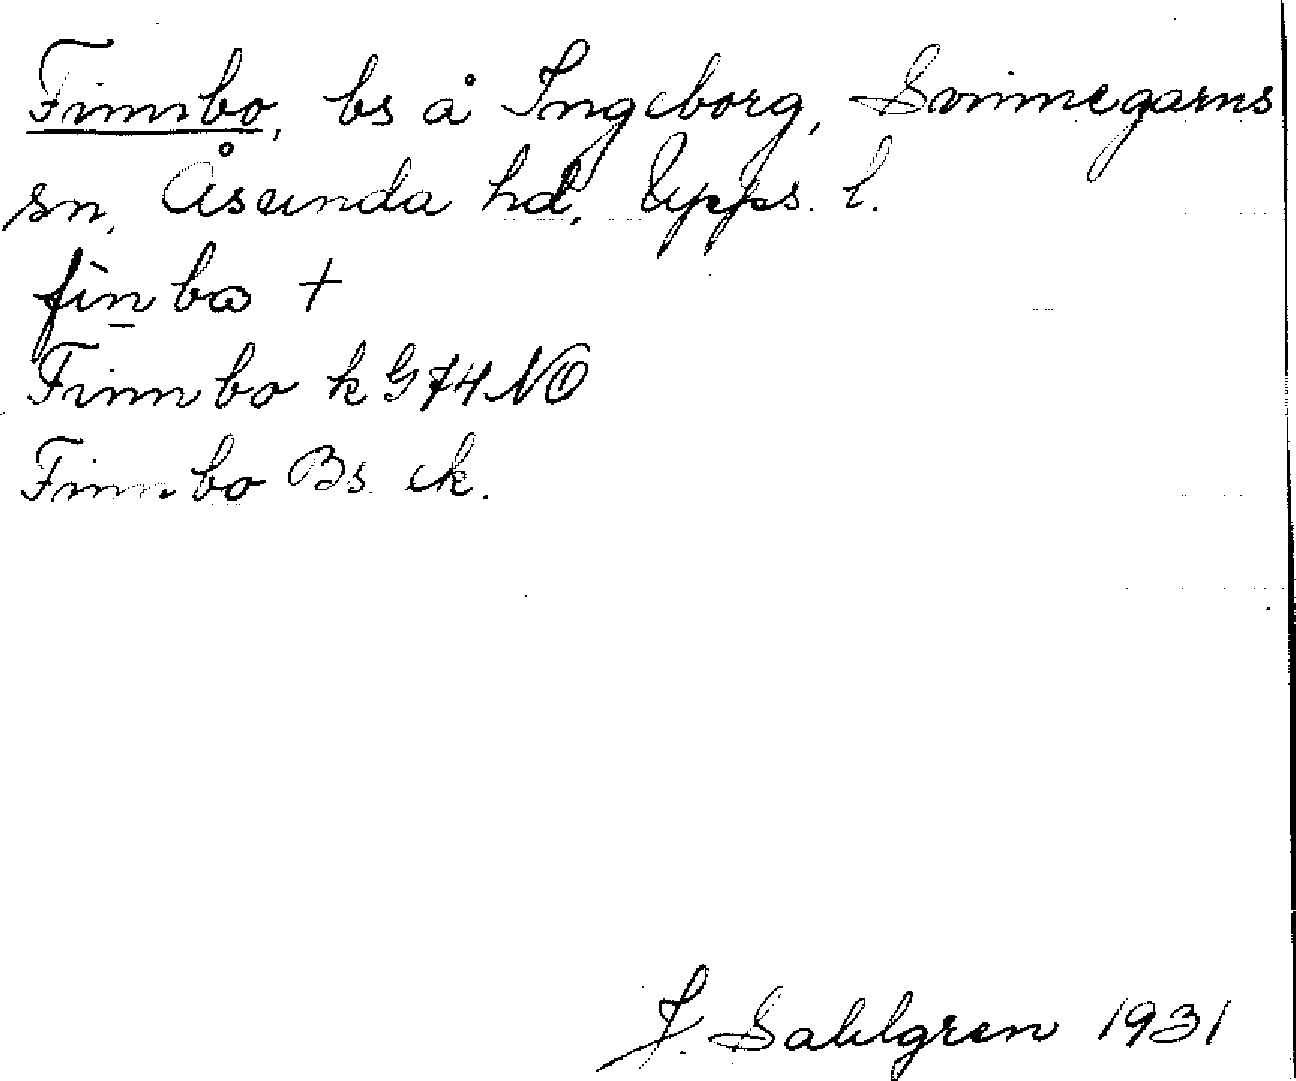 Finnbo, bs å Ingeborg, Svinnegarns
sn, Åsunda hd, Upps. l.
fìn bω +
Finnbo k G 74 NO
Finnbo Bs. ek.
J. Sahlgren 1931